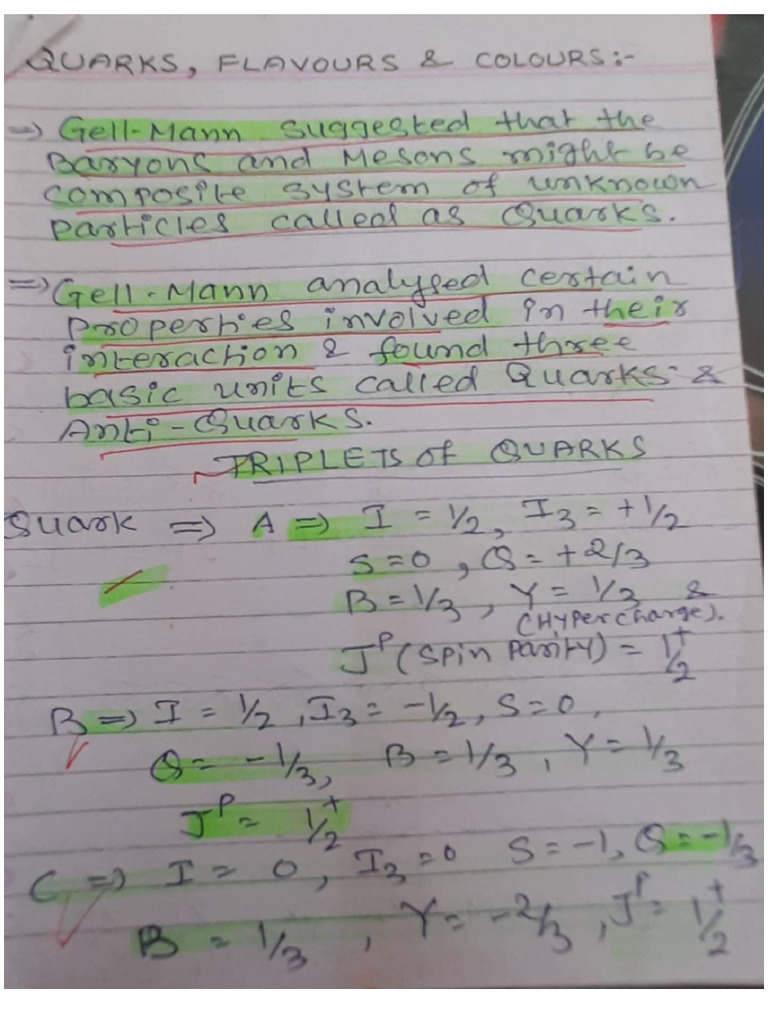 QUARKS, FLAVOURS & COLOURS:-
=> Gell-Mann suggested that the
Baryons and Mesons might be
composite system of unknown
particles called as Quarks.
=> Gell-Mann analysed certain
properties involved in their
interaction & found three
basic units called Quarks &
Anti-Quarks.
TRIPLETS of QUARKS
Quark => A => I = 1/2, I3 = +1/2
S=0, Q= +2/3
B = 1/3, Y = 1/3 &
(Hypercharge).
J^P (spin parity) = 1/2^+
B => I = 1/2, I3 = -1/2, S=0,
Q = -1/3, B = 1/3, Y = 1/3
J^P = 1/2^+
C => I = 0, I3 = 0 S = -1, Q = -1/3
B = 1/3, Y = -2/3, J^P = 1/2^+